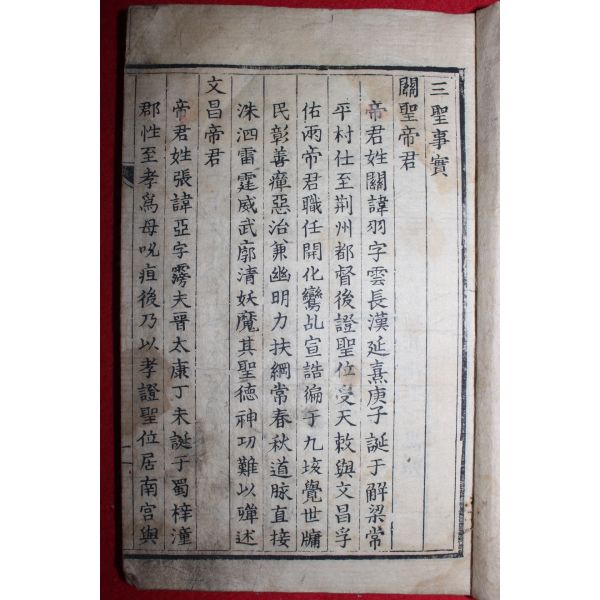 三聖事實
關聖帝君
帝君姓關諱羽字雲長漢延熹庚子誕于解梁常
平村仕至荆州都督後證聖位受天敕與文昌孚
佑兩帝君職任開化鸞乩宣誥徧于九垓覺世牖
民彰善癉惡治兼幽明力扶綱常春秋道脉直接
洙泗雷霆威武廓清妖魔其聖德神功難以殫述
文昌帝君
帝君姓張諱亞字霶夫晋太康丁未誕于蜀梓潼
郡性至孝爲母吮疽後乃以孝證聖位居南宫與